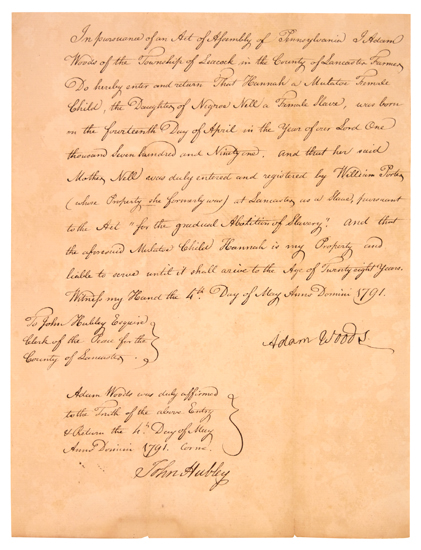 In pursuance of an Act of Assembly of Pennsylvania I Adam
Woods of the Township of Leacock in the County of Lancaster Farmer
Do hereby enter and return That Hannah a Mulatoe Female
Child, the Daughter of Negroe Nell a Female Slave, was born
on the fourteenth Day of April in the Year of our Lord One
thousand Seven hundred and Ninety one. And that her said
Mother Nell was duly entered and registered by William Porter
(whose Property she formerly was) at Lancaster as a Slave, pursuant
to the Act "for the gradual Abolition of Slavery". And that
the aforesaid Mulatoe Child Hannah is my Property and
liable to serve until it shall arive to the Age of Twenty eight Years.
Witness my Hand the 4th Day of May Anno Domini 1791.
To John Hubley Esquire
Clerk of the Peace for the
County of Lancaster.
Adam Woods
Adam Woods was duly affirmed
to the Truth of the above Entry
& Return the 4th Day of May
Anno Domini 1791.
John Hubley